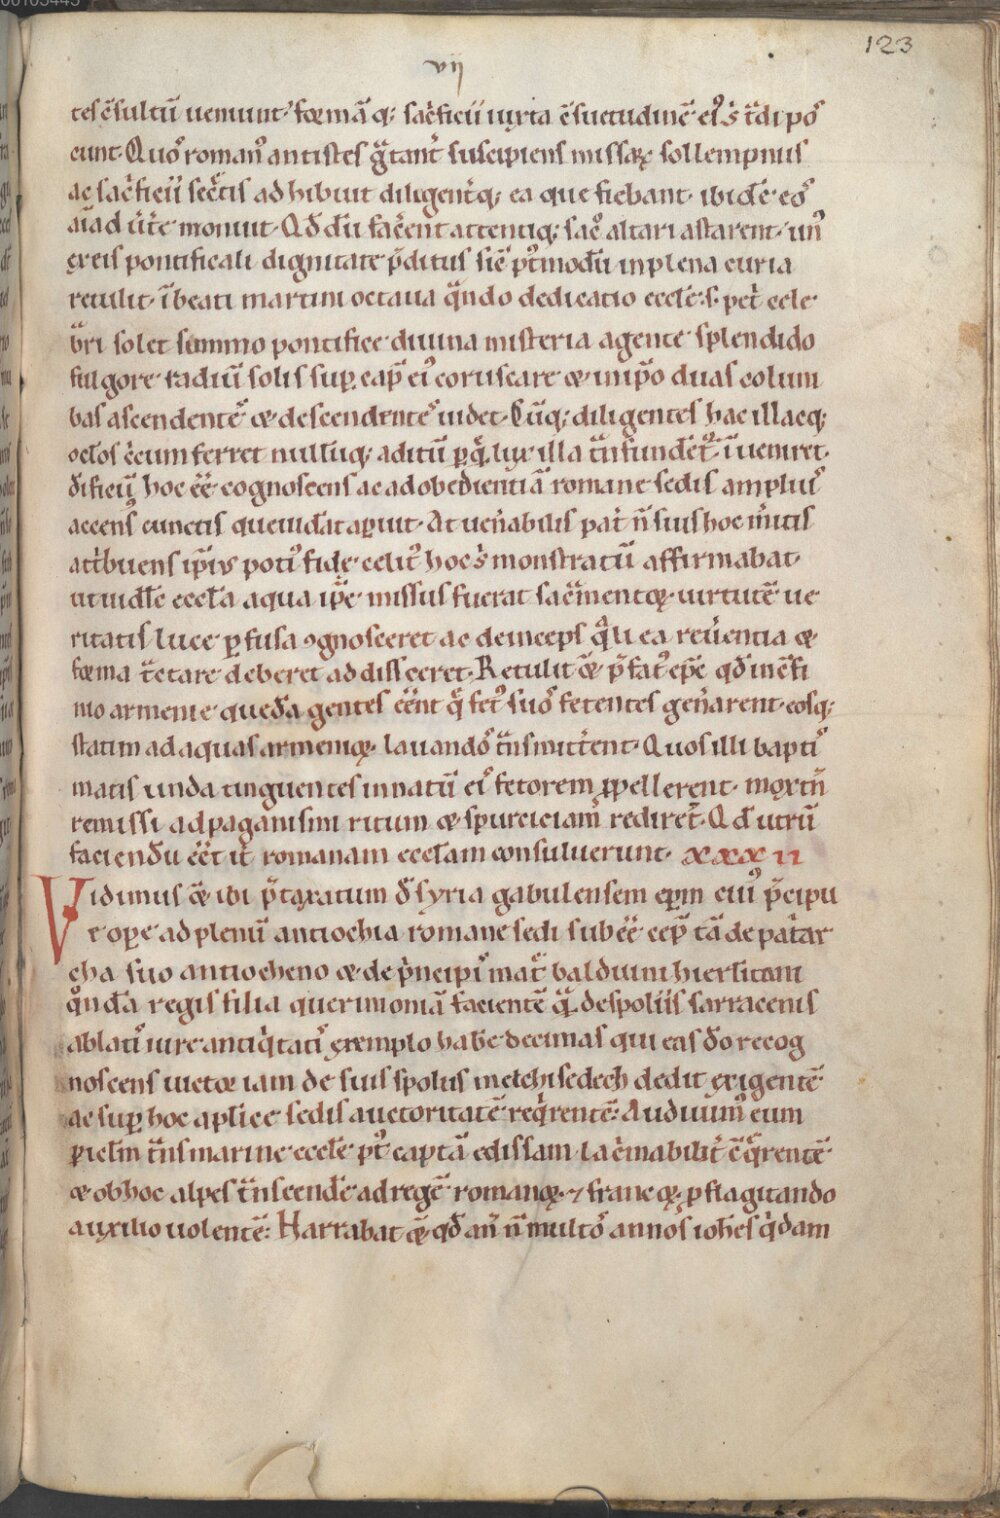 123
vii
tes c̄sultū ueniunt. formā q; sac̓ficii iuxta c̄suetudinē ei᷒ s̓ t̓di pos̓
cunt. Quos̓ roman᷒ antistes g̓tant̓ suscipiens missaꝝ sollempniis
ac sac̓ficii sec̓tis adhibuit diligent̓q; ea que fiebant. ibidē eos̓
aīaduʼt̓e monuit. Qd̄ dū fac̓ent attentiq; sac̓ altari astarent. un᷒
ex eis pontificali dignitate p̄ditus sic̄ pt᷒modū in plena curia
retulit. ī beati martini octaua q̓ndo dedicatio eccłe. s. pet̓ cele
b̓ri solet summo pontifice diuina misteria agente splendido
fulgore radiū solis suꝑ cap̄ ei᷒ coruscare & in ip̄o duas colum
bas ascendentes̓ & descendentes̓ uidet. Cūq; diligentes hac illacq;
ocłos c̓cumferret nullūq; aditū ꝑ q̓ lux illa t̓nfundet̓r inueniret.
d᷒ificū hoc eē cognoscens ac ad obedientiā romanę sedis ampli᷒
accens᷒ cunctis que uid̓at apuit. At ueňabilis pat̓ ñ suis hoc m̓itis
att̓buens ip̄ius poti᷒ fide celit᷒ hoc s̓ monstratū affirmabat.
ut uidłe eccła a qua ip̄e missus fuerat sac̓mentoꝝ. uirtutē ue
ritatis luce ꝑfusa ꝯgnosceret ac deinceps q̓li ea reuʼentia &
forma t̓ctare deberet addisceret. Retulit & p̄fat᷒ ep̄c qd̄ in c̄fi
nio armenie quedā gentes eēnt q̓ fet᷒ suos̓ fetentes geňarent. eosq;
statim ad aquas armenioꝝ. lauandos̓ t̓nsmitt̓ent. Quos illi baptis̓
matis unda tinguentes innatū ei᷒ fetorem ꝓpellerent. mox tn̄
remissi ad paganismi ritum & spurciciam rediret̓. Qd̄ utrū
faciendū eēt ut̓ romanam ecctam consuluerunt. XXXII
Vidimus & ibi p̄taxatum d̓ syria gabulensem epm̄ cui᷒ p̄cipu
e ope ad plenū antiochia romane sedi subeē cep̄ tā de pat̓ar
cha suo antiocheno & de p̓ncipis̓ mat̓ balduini hierlitani
q̓ndā regis filia querimoniā facientē q̓ de spoliis sarracenis
ablatis̓ iure antiq̓tatis̓ exemplo habē decimas qui eas d̓o recog
noscens uictor iam de suis spoliis melchisedech dedit exigentē
ac suꝑ hoc aplice sedis auctoritatē req̓rentē. Audiuim᷒ eum
ꝑiclm t̓nsmarine eccłe pt᷒ captā edissam lac̓mabilit̓ c̄q̓rentē
& ob hoc alpes t̓nscendē ad regē romanoꝝ ⁊ francoꝝ. ꝑ flagitando
auxilio uolentē. Narrabat & qd̄ an̄ ñ multos̓ annos̓ ioh̄es q̓dam